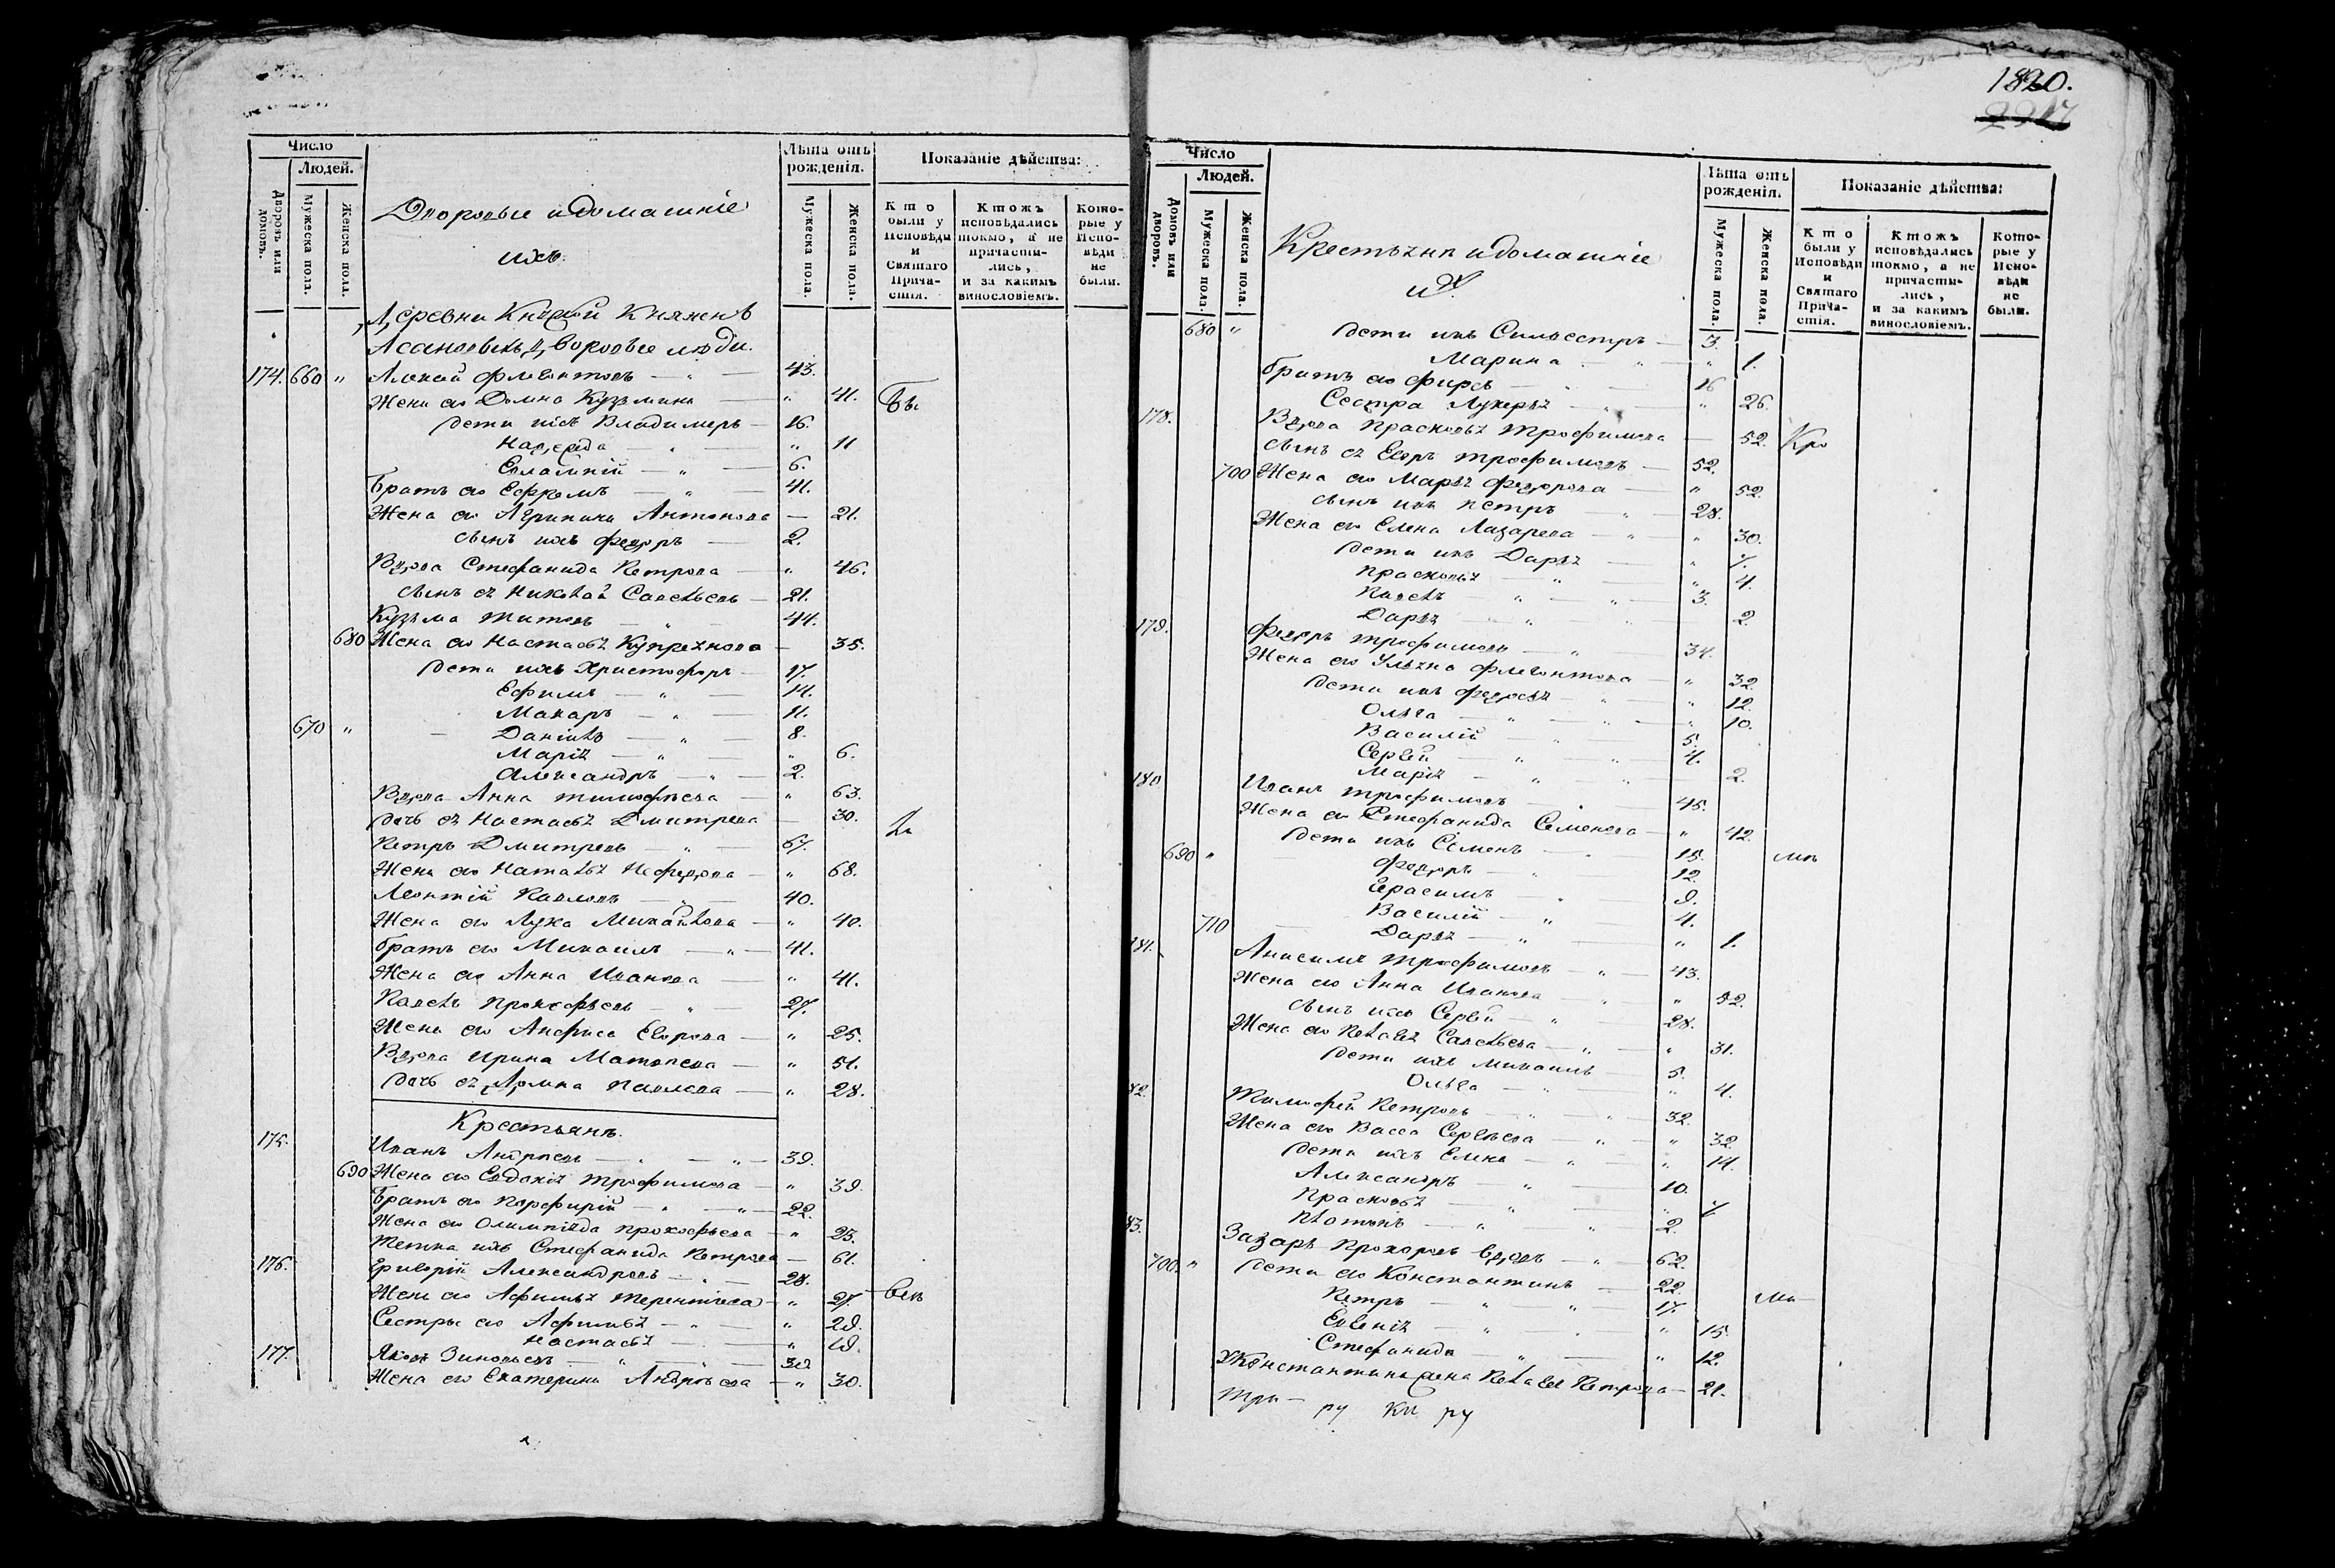 Число
Людей.
Дворовъ или домовъ.
Мужеска пола.
Женска пола.
Дворовые и домашніе
ихъ.
Лѣта отъ рожденія.
Мужеска пола.
Женска пола.
Показаніе дѣйства:
Кто были у Исповѣди и Святаго Прича-стія.
Ктожъ исповѣдались токмо, а не причасти-лись, и за какимъ винословіемъ.
Кото-рые у Испо-вѣди не были.
Деревни Княжей
дворовые люди.
174. 660 " Флегонтовъ — " — 43.
Жена его Домна Кузьмина — " 41. Бы
Дети ихъ Владимеръ — 16.
Надежда — " — " 11
Евлампій — " — 6.
Братъ его Ефремъ — " — 41.
Жена его Агрипина Антонова — 21.
Сынъ ихъ Федоръ — 2.
Вдова Стефанида Петрова — " 46.
Сынъ ея Николай Савельевъ — 21.
Кузьма Титовъ — " — 44.
680 Жена его Настасья Купреянова — 35.
Дети ихъ Христофоръ — 17.
Ефимъ — " — 14.
Макаръ — " — 11.
670 " — Даніилъ — " — 8.
Марія — " — " 6.
Александръ — " — 2.
Вдова Анна Тимофеева — " 63.
Дочь ея Настасья Дмитрева — 30. ли
Петръ Дмитревъ — " — 67.
Жена его Наталья Нефедова — " 68.
Леонтій Павловъ — " — 40.
Жена его Михайлова — " 40.
Братъ его Михаилъ — " — 41.
Жена его Анна Иванова — " 41.
Павелъ Прокофьевъ — " — 27.
Жена его Анфиса Егорова — " 25.
Вдова Ирина Матвеева — " 51.
Дочь ея Домна Павлова — " 28.
Крестьянъ.
175. Иванъ Андреевъ — " — " — 39.
690 Жена его Евдокія Трофимова — " 39.
Братъ его Порфирій — " — " — 22.
Жена его Олимпіяда Прокофьева — " 25.
Тетка ихъ Стефанида Петрова — 61.
176. Григорій Александровъ — " — 28.
Жена его Афимья Терентіева — " 27. Вси
Сестры его Афимья — " — " 29.
Настасья — " — " 19.
177. Яковъ Зиновьевъ — " — " — 30
Жена его Екатерина Андреева — " 30.
1820.
Число
Людей.
Домовъ или дворовъ.
Мужеска пола.
Женска пола.
Крестьяня и домашніе
их.
Лѣта отъ рожденія.
Мужеска пола.
Женска пола.
Показаніе дѣйства:
Кто были у Исповѣди и Святаго Прича-стія.
Ктожъ исповѣдались токмо, а не причасти-лись, и за какимъ винословіемъ.
Кото-рые у Испо-вѣди не были.
680 " Дети ихъ Сильвестръ — 3.
Марина — " — " 1.
Братъ его Фирсъ — " — 16
Сестра Лукерья — " — " 26.
178. Вдова Прасковья Трофимова — 52. Кро
Сынъ ея Егоръ Трофимовъ — 52.
700 Жена его Марья Федорова — " 52.
Сынъ ихъ Петръ — " — 28.
Жена его Елена Лазарева — " — " 30.
Дети ихъ Дарья — " 7.
Прасковья — " — " 4.
Павелъ — " — " — 3.
Дарья — " — " 2.
179. Федоръ Трофимовъ — " — 34.
Жена его Ульяна Флегонтова — " 32.
Дети ихъ Федосья — " — " 12.
Ольга — " — " — " 10.
Василій — " — 5.
Сергей — " — " — 4.
Марія — " — " 2.
180 Иванъ Трофимовъ — " — 45.
Жена его Стефанида Семенова — " 42.
Дети ихъ Семенъ — " — 15. ми
690 " Федоръ — " — 12.
Герасимъ — " — 9.
Василій — " — 4.
710 — Дарья — " — " 1.
181. Анисимъ Трофимовъ — " — 43.
Жена его Анна Иванова — " — " 52.
Сынъ ихъ Сергей — " — 28.
Жена его Пелагея Савельева — " — " 31.
Дети ихъ Михаилъ — 5.
Ольга — " — " 4.
82. Тимофей Петровъ — " — " — 32.
Жена его Васса Сергеева — " — " 32.
Дети ихъ Елена — " — " 14.
Александръ — " — 10.
Прасковья — " — " 7.
Платонъ — " — " — 2.
83. Захаръ Прохоровъ вдовъ — " — 62.
700. " Дети его Константинъ — 22.
Петръ — " — " — 17. ми —
Евгенія — " — " — " 15.
Стефанида — " — " 12.
Константина жена Пелагея Петрова — 21.
При —